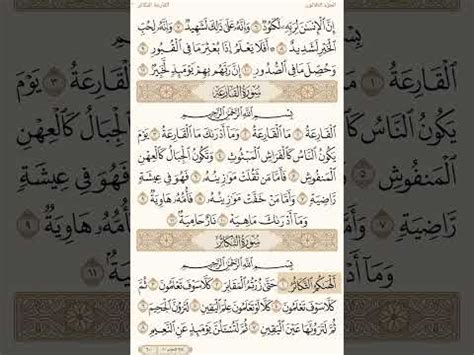 الجزء الثلاثون
إِنَّ ٱلْإِنسَٰنَ لِرَبِّهِۦ لَكَنُودٌ ٦ وَإِنَّهُۥ عَلَىٰ ذَٰلِكَ لَشَهِيدٌ ٧ وَإِنَّهُۥ لِحُبِّ
ٱلْخَيْرِ لَشَدِيدٌ ٨ أَفَلَا يَعْلَمُ إِذَا بُعْثِرَ مَا فِي ٱلْقُبُورِ ٩
وَحُصِّلَ مَا فِي ٱلصُّدُورِ ١٠ إِنَّ رَبَّهُم بِهِمْ يَوْمَئِذٍ لَّخَبِيرٌ ١١
سُورَةُ القَارِعَةِ
بِسْمِ ٱللَّهِ ٱلرَّحْمَٰنِ ٱلرَّحِيمِ
ٱلْقَارِعَةُ ١ مَا ٱلْقَارِعَةُ ٢ وَمَآ أَدْرَىٰكَ مَا ٱلْقَارِعَةُ ٣ يَوْمَ
يَكُونُ ٱلنَّاسُ كَٱلْفَرَاشِ ٱلْمَبْثُوثِ ٤ وَتَكُونُ ٱلْجِبَالُ كَٱلْعِهْنِ
ٱلْمَنفُوشِ ٥ فَأَمَّا مَن ثَقُلَتْ مَوَٰزِينُهُۥ ٦ فَهُوَ فِي عِيشَةٍ
رَّاضِيَةٍ ٧ وَأَمَّا مَنْ خَفَّتْ مَوَٰزِينُهُۥ ٨ فَأُمُّهُۥ هَاوِيَةٌ ٩
وَمَآ أَدْرَىٰكَ مَا هِيَهْ ١٠ نَارٌ حَامِيَةٌۢ ١١
سُورَةُ التَّكَاثُرِ
بِسْمِ ٱللَّهِ ٱلرَّحْمَٰنِ ٱلرَّحِيمِ
أَلْهَىٰكُمُ ٱلتَّكَاثُرُ ١ حَتَّىٰ زُرْتُمُ ٱلْمَقَابِرَ ٢ كَلَّا سَوْفَ تَعْلَمُونَ ٣ ثُمَّ
كَلَّا سَوْفَ تَعْلَمُونَ ٤ كَلَّا لَوْ تَعْلَمُونَ عِلْمَ ٱلْيَقِينِ ٥ لَتَرَوُنَّ ٱلْجَحِيمَ
٦ ثُمَّ لَتَرَوُنَّهَا عَيْنَ ٱلْيَقِينِ ٧ ثُمَّ لَتُسْـَٔلُنَّ يَوْمَئِذٍ عَنِ ٱلنَّعِيمِ ٨
٦٠٠